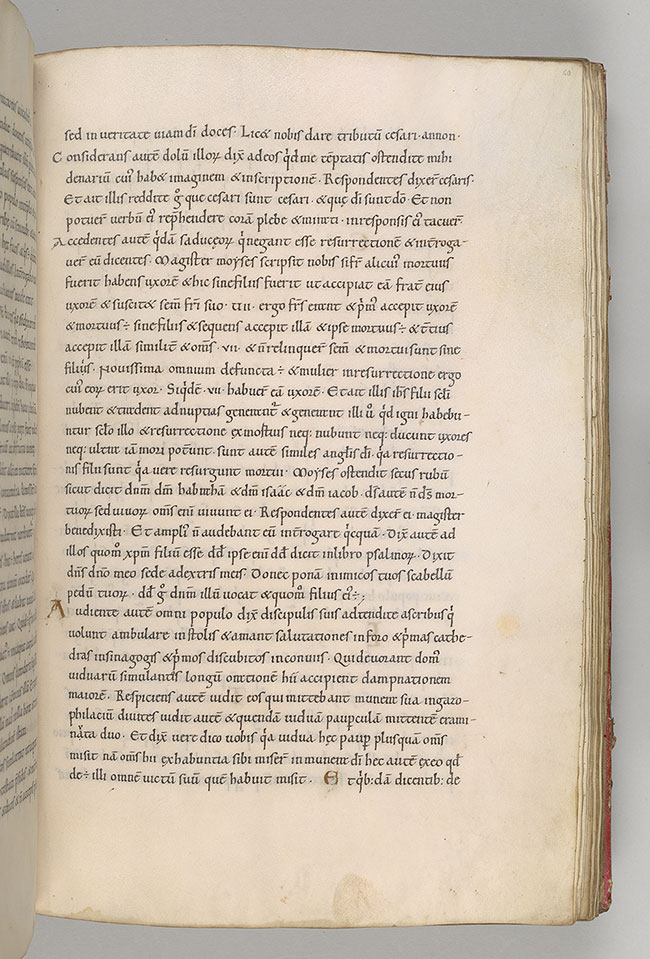 60
sed in veritate viam dī doces. Licet nobis dare tributū cesari. annon.
Considerans autē dolū illoꝝ dix̄ adeos q̇d me tēptatis ostendite mihi
denariū cuiꝰ habet imaginem & inscriptionē. Respondentes dixer̄ cesaris.
Et ait illis reddite g̊ que cesari sunt cesari. & quę dī sunt dō. Et non
potuer̄ verbū eiꝰ rep̄hendere corā plebe & mirati. inresponsis eiꝰ tacuer̄
Accedentes autē q̇dā saduceoꝝ q̇ negant esse resurrectionē & int̄roga-
ver̄ eū dicentes. Magister moyses scripsit nobis si fr̄ alicuiꝰ mortuus
fuerit habens uxorē & hic sine filiis fuerit ut accipiat eā frat̄ eius
uxorē & suscitet sem̄ fr̄i suo. vii. ergo fr̄s erant & ṗmꝰ accepit uxorē
& mortuus ÷ sine filiis & sequens accepit illā & ipse mortuus ÷ & t̄tius
accepit illā similit̄ & om̄s. vii. & n̄ relinquer̄ sem̄ & mortui sunt sine
filiis. Novissima omnium defuncta ÷ & mulier inresurrectione ergo
cuiꝰ eoꝝ erit uxor. Siq̇dē. vii. habuer̄ eā uxorē. Et ait illis ih̄s filii sc̄li
nubent & tradent adnuptias generant᷑ & generant illi v̊ q̇ digni habebu-
ntur sc̄lo illo & resurrectione ex mortuis neq; nubunt neq; ducunt uxores
neq; ultr̄a iam mori poter̄unt. sunt autē similes angl̄is dī. q̇a resurrectio-
nis filii sunt q̇a vere resurgunt mortui. Moyses ostendit secus rubū
sicut dicit dn̄m dm̄ habrahā & dm̄ isaác & dm̄ iacob. dś autē n̄ ds̄ mor-
tuoꝝ sed vivoꝝ om̄s eni vivunt ei. Respondentes autē dixer̄ ei. magister
benedixisti. Et ampliꝰ n̄ audebant eū int̄rogart q̇cquā. Dix̄ autē ad
illos quom̊ xp̄m filiū esse dđ ipse eni dđ dicit inlibro psalmoꝝ. Dixit
dn̄s dn̄o meo sede adextris meis. Donec ponā inimicos tuos scabellū
pedū tuoꝝ. dđ g̊ dn̄m illū vocat & quom̊ filius eiꝰ ÷;
Audiente autē omni populo dix̄ discipulis suis adtendite ascribis q̇
volunt ambulare instolis & amant salutationes inforo & ṗmas cathe-
dras insinagogis & ṗmos discubitos inconviis. Qui devorant domꝰ
viduarū simulantes longū orationē hii accipient dampnationem
maiorē. Respiciens autē vidit eos qui mittebant munera sua ingazo-
philaciū divites vidit autē & quendā viduā paupculā mittentē erami-
nuta duo. Et dix̄ vere dico vobis q̇a vidua hęc paup̄ plusquam om̄s
misit nā om̄s hii exhabuntia sibi miser̄ in munera dī hec autē exeo qđ
de ÷ illi omnē victū suū quē habuit misit. Et q̇b; dā dicentib; de